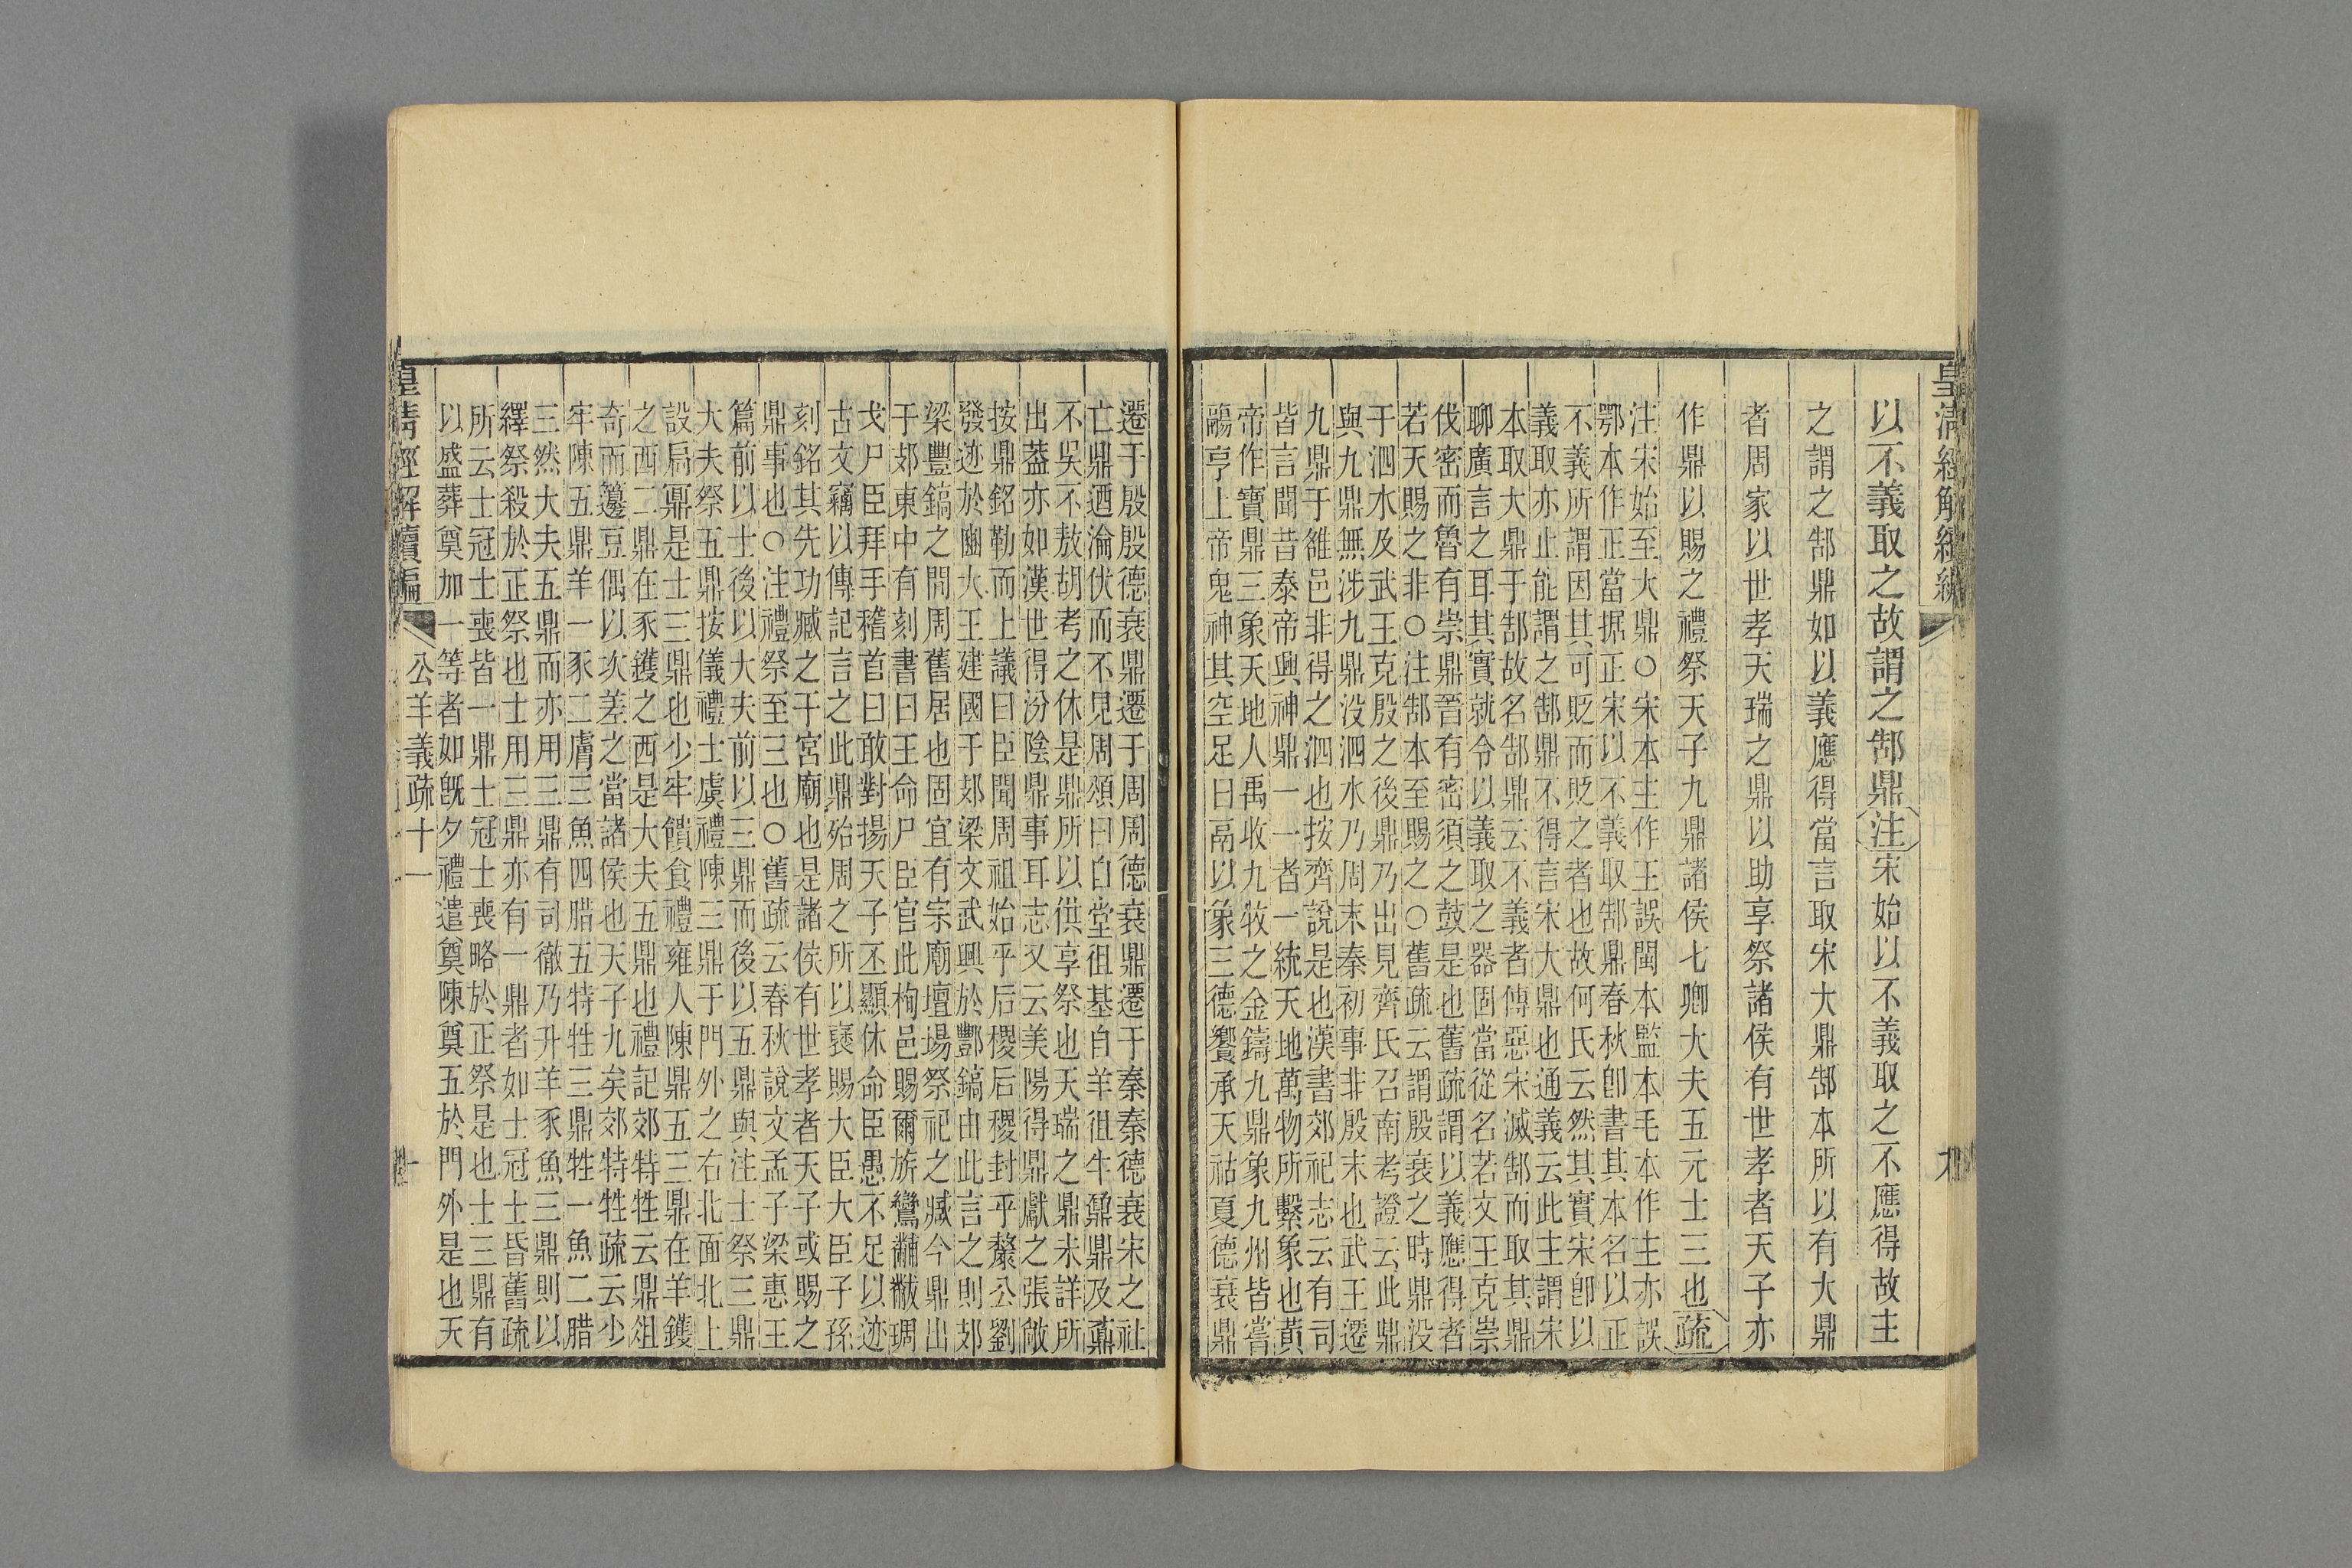 皇清經解續編
以不義取之故謂之郜鼎注宋始以不義取之不應得故主
之謂之郜鼎如以義應得當言取宋大鼎郜本所以有大鼎
者周家以世孝天瑞之鼎以助享祭諸侯有世孝者天子亦
作鼎以賜之禮祭天子九鼎諸侯七卿大夫五元士三也疏
注宋始至大鼎○宋本主作王誤閩本監本毛本作主亦誤
鄂本作正當据正宋以不義取郜鼎春秋卽書其本名以正
不義所謂因其可貶而貶之者也故何氏云然其實宋卽以
義取亦止能謂之郜鼎不得言宋大鼎也通義云此主謂宋
本取大鼎于郜故名郜鼎云不義者傳惡宋滅郜而取其鼎
聊廣言之耳其實就令以義取之器固當從名若文王克崇
伐密而魯有崇鼎晉有密須之鼓是也舊疏謂以義應得者
若天賜之非○注郜本至賜之○舊疏云謂殷衰之時鼎没
于泗水及武王克殷之後鼎乃出見齊氏召南考證云此鼎
與九鼎無涉九鼎没泗水乃周末秦初事非殷末也武王遷
九鼎于雒邑非得之泗也按齊說是也漢書郊祀志云有司
皆言聞昔泰帝興神鼎一一者一統天地萬物所繫象也黃
帝作寶鼎三象天地人禹收九牧之金鑄九鼎象九州皆嘗
鬺亨上帝鬼神其空足曰鬲以象三德饗承天祜夏德衰鼎
遷于殷殷德衰鼎遷于周周德衰鼎遷于秦秦德衰宋之社
亡鼎迺淪伏而不見周頌曰自堂徂基自羊徂牛鼐鼎及鼒
不吳不敖胡考之休是鼎所以供享祭也天瑞之鼎未詳所
出葢亦如漢世得汾陰鼎事耳志又云美陽得鼎獻之張敞
按鼎銘勒而上議曰臣聞周祖始乎后稷后稷封乎斄公劉
發迹於豳大王建國于郊梁文武興於酆鎬由此言之則郊
梁豐鎬之間周舊居也固宜有宗廟壇場祭祀之臧今鼎出
于郊東中有刻書曰王命尸臣官此栒邑賜爾旂鸞黼黻琱
戈尸臣拜手稽首曰敢對揚天子丕顯休命臣愚不足以迹
古文竊以傳記言之此鼎殆周之所以襃賜大臣大臣子孫
刻銘其先功臧之于宮廟也是諸侯有世孝者天子或賜之
鼎事也○注禮祭至三也○舊疏云春秋說文孟子梁惠王
篇前以士後以大夫前以三鼎而後以五鼎與注士祭三鼎
大夫祭五鼎按儀禮士虞禮陳三鼎于門外之右北面北上
設扃鼏是士三鼎也少牢饋食禮雍人陳鼎五三鼎在羊鑊
之西二鼎在豕鑊之西是大夫五鼎也禮記郊特牲云鼎俎
奇而籩豆偶以次差之當諸侯也天子九矣郊特牲疏云少
牢陳五鼎羊一豕二膚三魚四腊五特牲三鼎牲一魚二腊
三然大夫五鼎而亦用三鼎有司徹乃升羊豕魚三鼎則以
繹祭殺於正祭也士用三鼎亦有一鼎者如士冠士昏舊疏
所云士冠士喪皆一鼎士冠士喪略於正祭是也士三鼎有
以盛葬奠加一等者如旣夕禮遣奠陳奠五於門外是也天
皇清經解續編 公羊義疏十一